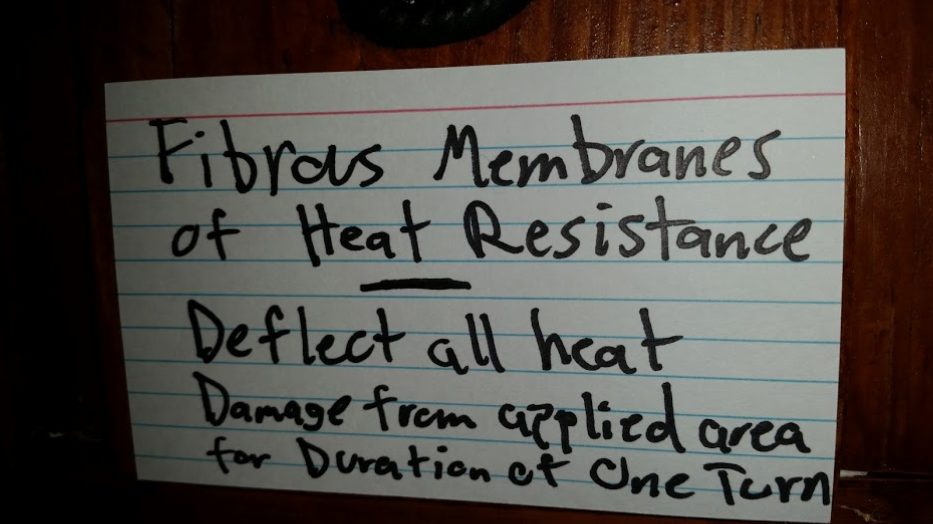 Fibrous Membranes
of Heat Resistance
Deflect all heat
Damage from applied area
for Duration of One Turn